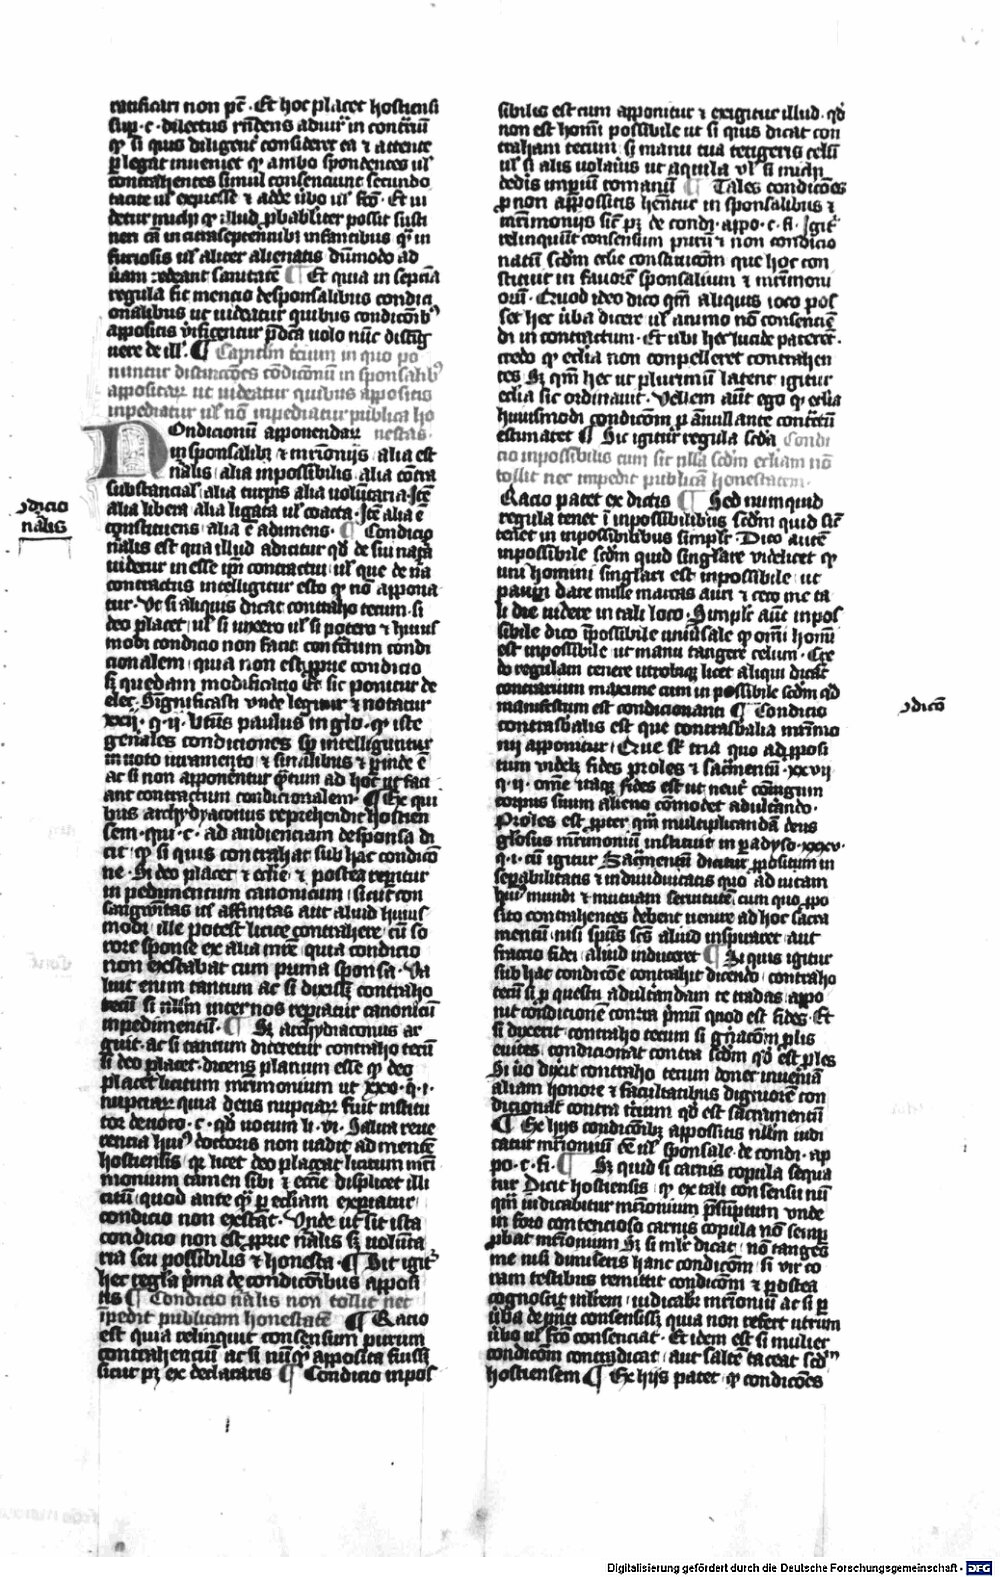 ratificari non pt̄ · Et hoc placet hostiensi
sup̱ · c · dilectus
ꝙ si quis diligent᷑ consideret ea ⁊ attente
ꝑlegat inueniet ꝙ ambo spondentes ul᷑
contrahentes simul consenciunt secundo
tacite ul᷑ expresse ⁊ adde ũbo ul᷑ fc̄o · Et ui
detur michi ꝙ illud ꝓbabiliter possit susti
neri
furiosis ul᷑ aliter alienatis dūmodo ad
sanitatē ¶ Et quia in
regula fit mencio desponsalibus condici
onalibus ut uideatur quibus condicōibꝰ
appositis uolo nūc
uere de ill᷑ · ¶ Capitlm̄ t̄cium in quo po
nuntur distinctōes cōdicōnū in sponsalibꝰ
appositaꝝ ut uideatur quibus appositis
inpediatur ul᷑ nō inpediatur publica ho
ondicionū apponendaꝝ nestas ·
in sponsalibꝫ ⁊ mr̄ionijs alia est
nālis alia inpossibilis alia cōtra
substancial᷑ alia turpis alia uolūtaria · Itē
alia libera alia ligata ul᷑ coacta · Itē alia ē
constituens alia ē adimens · ¶ Condicio
nālis est qua illud adicitur qd̄ de sui nat̄a
uidetur in esse ip̄i contractui ul᷑ que de nā
contractus intelligitur esto ꝙ nō appona
tur · Vt si aliquis dicat contraho tecum si
deo placet ul᷑ si uixero ul᷑ si potero ⁊ huius᷑
modi condicio non facit contc̄tum condi
cionalem quia non est ꝓprie condicio
sꝫ quedam modificatio Et sic ponitur de
elec · Significasti vnde legitur ⁊ notatur
xxij · q · ij · btūs paulus in glo · ꝙ iste
geñales condiciones sꝑ intelliguntur
in uoto iuramento ⁊ similibus ⁊ ꝑinde ē
ac si non apponentur q̄tum ad hoc ut faci
ant contractum condicionalem · ¶ Ex qui
bus archydyaconus reprehendit hostien
sem · qui · c · ad audienciam desponsa di
cit ꝙ si quis contrahat sub hac condicō
ne · Si deo placet ⁊ ecc̄ie ⁊ postea reꝑitur
inpedimentum canonicum sicut con
sangwītas ul᷑ affinitas aut aliud huius᷑
modi ille potest licite contrahere cū so
rore sponse ex alia mr̄te quia condicio
non exstabat cum prima sponsa · Va
luit enim tantum ac si dixisset contraho
tecū si nllm̄ inter nos reꝑiatur canonicū
inpedimentū · ¶ Sꝫ archydiaconus ar
guit · ac si tantum diceretur contraho tecū
si deo placet · dicens planum esse ꝙ deo
placet licitum mr̄imonium ut xxxi · q · i ·
nupciaꝝ quia deus nupciaꝝ fuit institu
tor de uoto · c · qd̄ uotum li · vi · Salua reue
rencia huiꝰ doctoris non uadit ad mentē
hostiensis qꝛ licet deo placeat licitum mr̄i
monium tamen sibi ⁊ ecc̄ie displicet illi
citū quod ante q̄ꝫ ꝑ ecc̄iam expiatur
condicio non exstat · Vnde ut sit ista
condicio non est ꝓprie nālis sꝫ uolūta
ria seu possibilis ⁊ honesta · ¶ Sit igit᷑
hec regl̄a ṗma de condicōibus apposi
tis ¶ Condicio nālis non tollit nec
ip̄edit publicam honestatē ¶ Racio
est quia relinquit consensum purum
contrahenciū ac si nūꝙ apposita fuiss᷑
sicut pꝫ ex declaratis ¶ Condicio inpos᷑
ↄdicio
nālis
sibilis est cum apponitur ⁊ exigitur illud · qd̄
non est homī possibile ut si quis dicat con
traham tecum si manu tua tetigeris celū
ul᷑ si alis uolaūis ut aquila ul᷑ si michi
dedis impiū romanū ¶ Tales condicōes
ꝓ non appositis hn̄tur in sponsalibus ⁊
mr̄imonijs sic᷑ pꝫ de condi · appo · c · fi · Igit᷑
relinquūt consensum purū ⁊ non condicio
natū scd̄m ecc̄ie constitucōm que hoc con
stituit in fauorē sponsalium ⁊ mr̄imoni
orū · Quod ideo dico qm̄ aliquis ioco pos᷑
set hec ũba dicere ul᷑ animo nō consencie
di in contractum · Et ubi hec lucide pateret ·
credo ꝙ ecc̄ia non conpelleret contrahen
tes Sꝫ qm̄ hec ut plurimū latent igitur
ecc̄ia sic ordinauit · Vellem aūt ego ꝙ ecc̄ia
huiusmodi condicōm ꝑ ānullante contc̄tū
estimaret ¶ Sit igitur regula scd̄a Condi
cio inpossibilis cum sit nlla scd̄m ecc̄iam nō
tollit nec impedit publicā honestatem ·
Racio patet ex dictis ¶ Sed numquid
regula tenet ī inpossibilibus scd̄m quid sic᷑
tenet in inpossibilibus simplr̄ · Dico autē
inpossibile scd̄m quid singlare videlicet ꝙ
uni homini singlari est inpossibile ut
pauꝑi dare mille marcas auri ⁊ ceco me ta
li die uidere in tali loco · Simplr̄ aūt inpos᷑
sibile dico īpossibile uniūsale ꝙ omī homī
est inpossibile ut manu tangere celum · Cre
do regulam tenere utrobiqꝫ licet aliqui dicāt
contrarium maxime cum inpossibile scd̄m qd̄
manifestum est condicionanti ¶ Condicio
contrasb̄alis est que contrasb̄alia mr̄imo
nij apponitur · Que st̄ tria quo ad ꝓposi
tum videlꝫ fides proles ⁊ sac̄mentū · xxvij
q · ij · om̄e itaqꝫ fides est ut neut᷑ cōiugum
corpus suum alieno cōmodet adultando ·
Proles est ꝓpter qm̄ multiplicandā deus
gl̄osus mr̄imoniū instituit in ꝑadyso · xxxv ·
q · i · cū igitur Sac̄mentū dicitur ꝓpositum in
seꝑabilitatis ⁊ indiuiduitatis quo ad uitam
huiꝰ mundi ⁊ mutuam seruitutē cum quo ꝓpo
sito contrahentes debent uenire ad hoc sacra
mentū nisi spūs sc̄s aliud inspiraret aut
fractio fidei aliud induceret ¶ Si quis igitur
sub hac condicōe contrahit dicendo contraho
tecū si ꝑ questu adultandam te tradas appo
nit condicione contra ṗmū quod est fides · Et
si dixerit contraho tecum si gn̄acōm ꝓlis
euites condicionat contra scd̄m qd̄ est ꝓles
Si ũo dixit contraho tecum donec inueniā
aliam honore ⁊ facultatibus digniorē con
dicionat contra t̄cium qd̄ est sacramentū
¶ Ex hijs condicōibꝫ appossitis nllm̄ iudi
catur mr̄imoniū eē ul᷑ sponsale de condi · ap
po · c · fi · ¶ Sꝫ quid si carnis copula sequa
tur Dicit hostiensis ꝙ ex tali consensu nū
qm̄ iudicabitur mr̄imonium ꝑsūptum vnde
in foro contencioso carnis copula nō semꝑ
ꝓbat mr̄imonium Sꝫ si mlr̄ dicat nō tanges
me nisi dimiseris hanc condicōm si vir co
ram testibus remittit condicōm ⁊ ꝑ postea
cognoscit mlīrem iudicabr̄ mr̄imoniū ac si ꝑ
ũba de pn̄ti consensissꝫ quia non refert utrum
ũbo ul᷑ fc̄o consenciat · Et idem est si mulier
condicōm contradicat aut saltē taceat scd̄m
hostiensem ¶ Ex hijs patet ꝙ condicōes
ↄdicō
Digitalisierung gefördert durch die Deutsche Forschungsgemeinschaft - DFG